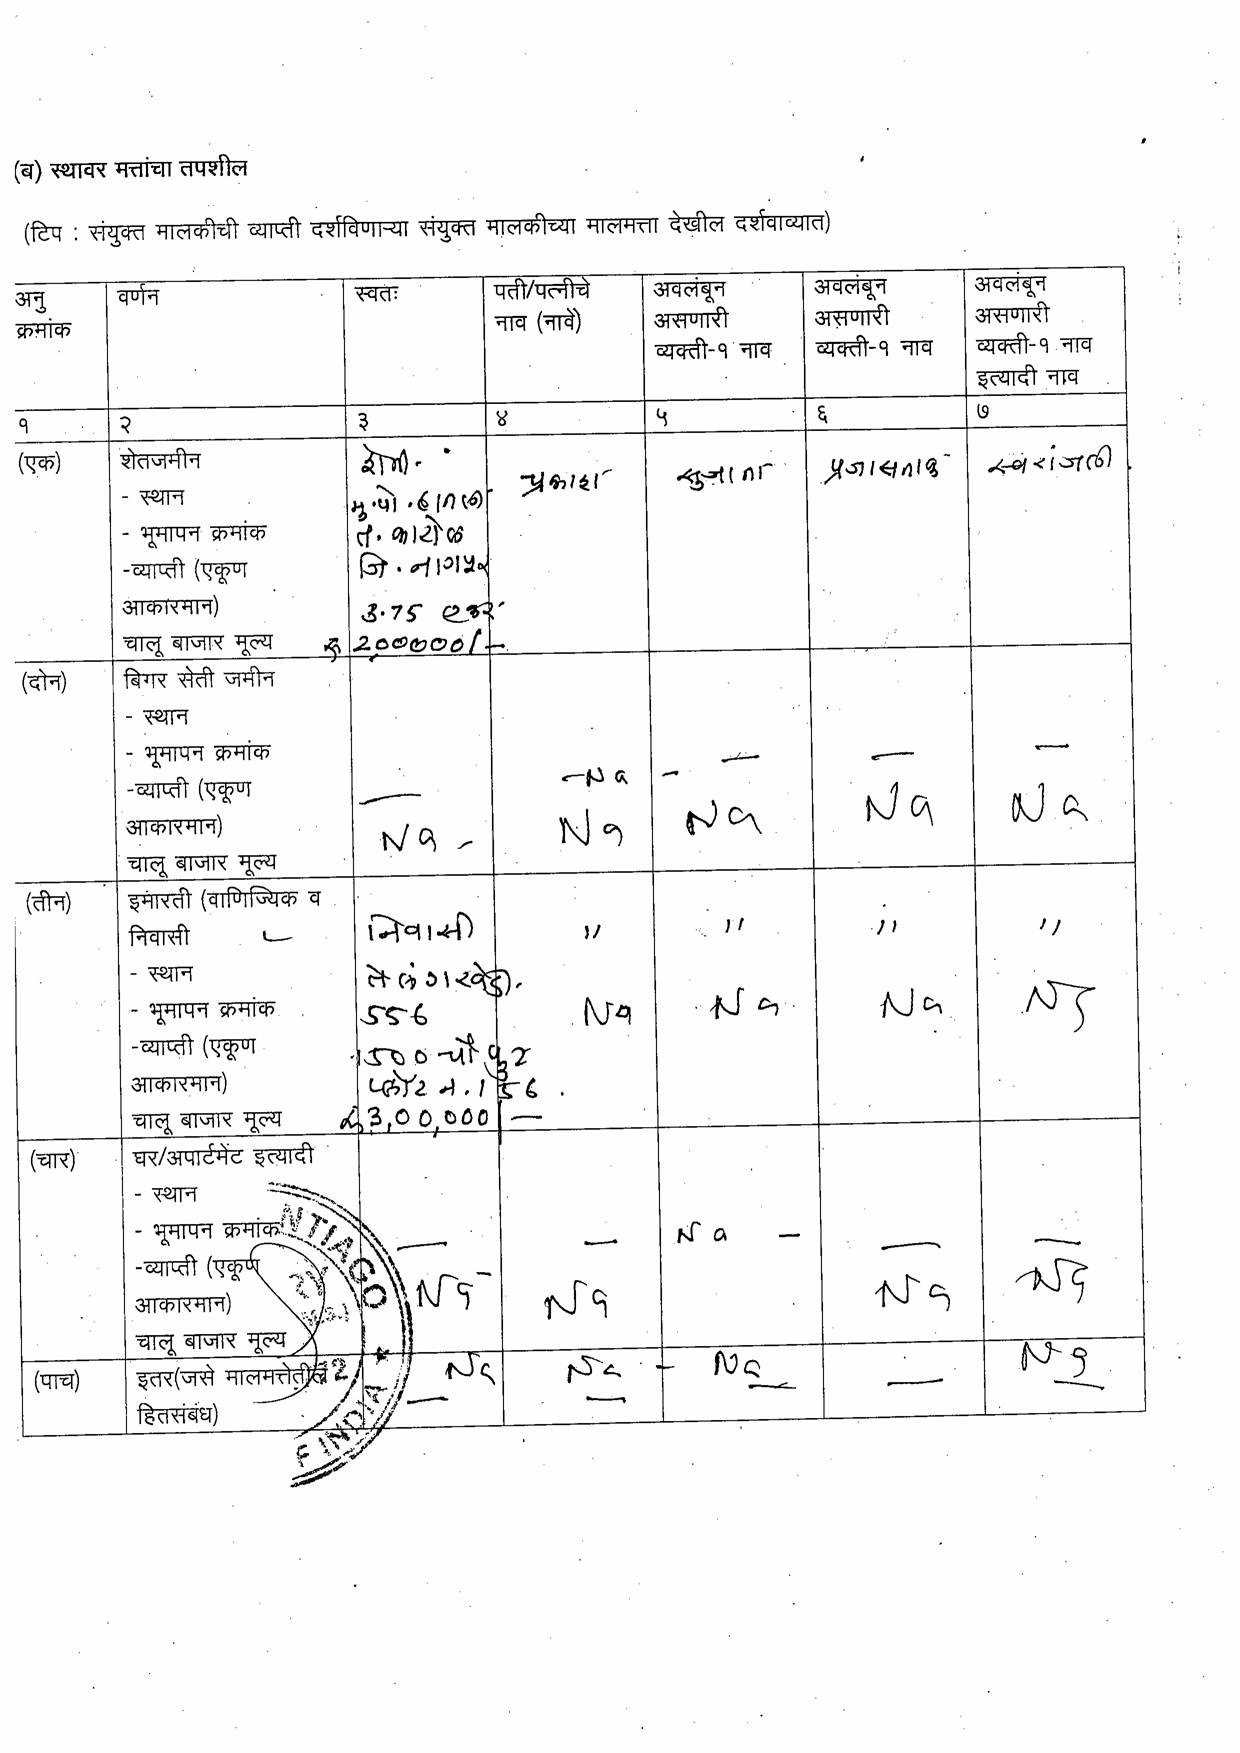 (ब) स्थावर मत्तांचा तपशील
(टिप : संयुक्त मालकीची व्याप्ती दर्शविणाऱ्या संयुक्त मालकीच्या मालमत्ता देखील दर्शवाव्यात)
अनु क्रमांक
वर्णन
स्वतः
पती/पत्नीचे
नाव (नावे)
अवलंबून
असणारी
व्यक्ती-१ नाव
अवलंबून
असणारी
व्यक्ती-१ नाव
अवलंबून
असणारी
व्यक्ती-१ नाव
इत्यादी नाव
१ २ ३ ४ ५ ६ ७
(एक) शेतजमीन
प्रकाश सुजाता स्वरांजली
- स्थान
मु.पो.
- भूमापन क्रमांक त. काटोल
-व्याप्ती (एकूण जि. नागपूर
आकारमान) 3.75 एकर
चालू बाजार मूल्य रु 2,00000/-
(दोन) बिगर सेती जमीन
- स्थान
- भूमापन क्रमांक — — —
-व्याप्ती (एकूण — -Na -
आकारमान) Na - Na Na Na Na
चालू बाजार मूल्य
(तीन) इमारती (वाणिज्यिक व
निवासी निवासी " " " "
- स्थान तेलंगखेडी.
- भूमापन क्रमांक 556 Na Na Na Na
-व्याप्ती (एकूण 1500 चौ फुट
आकारमान) प्लॉट न. 156.
चालू बाजार मूल्य रु 3,00,000/-
(चार) घर/अपार्टमेंट इत्यादी
- स्थान
- भूमापन क्रमांक — — Na - — —
-व्याप्ती (एकूण Na - Na Na Na
आकारमान)
चालू बाजार मूल्य
(पाच) इतर(जसे मालमत्तेतील Na Na - Na — Na
हितसंबंध) — —
NTIAGO
★
F INDIA